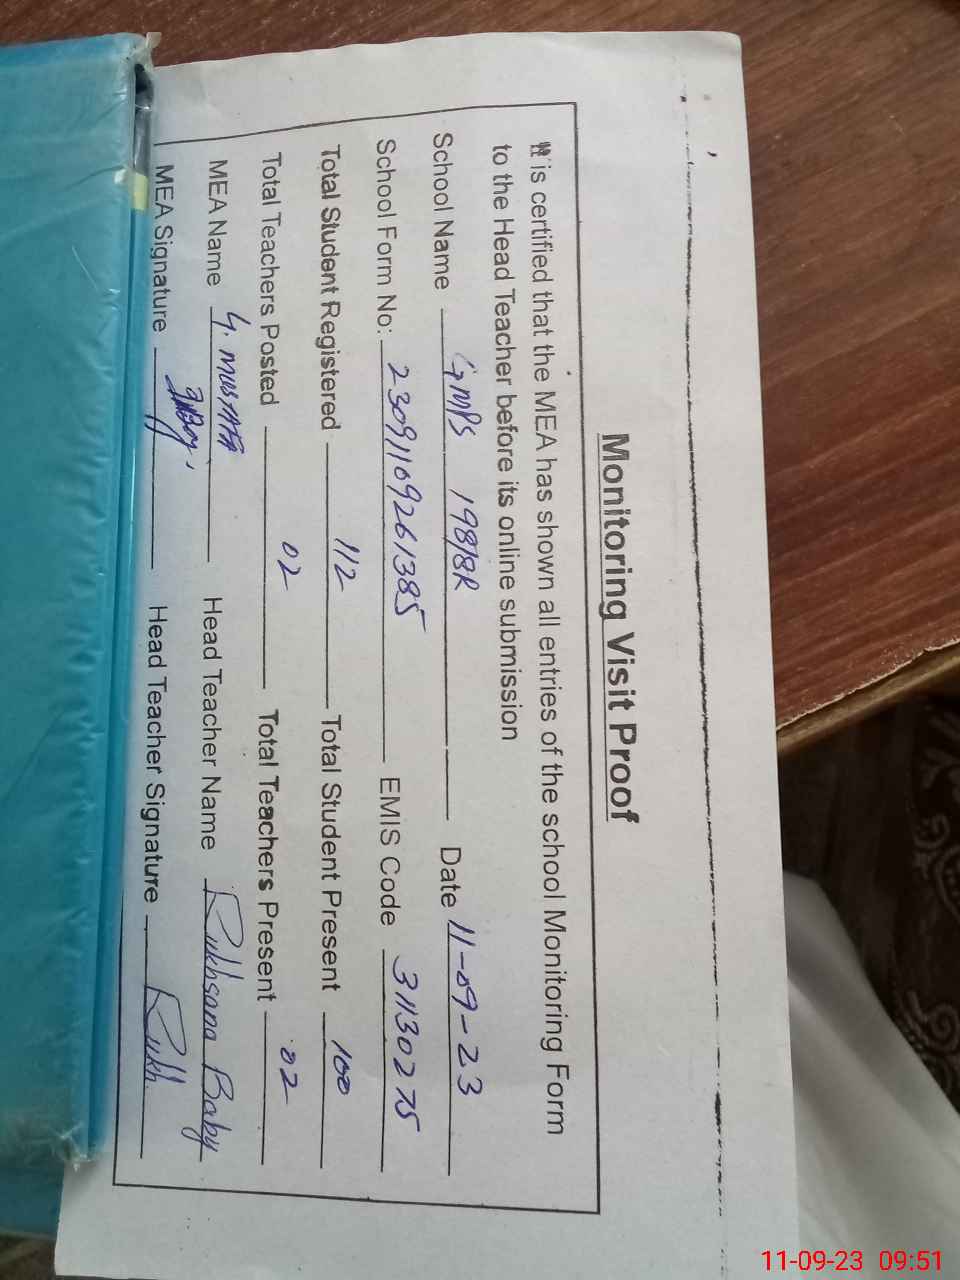 Monitoring Visit Proof
It is certified that the MEA has shown all entries of the school Monitoring Form
to the Head Teacher before its online submission
School Name GMPS 198/8R Date 11-09-23
School Form No: 23091109261385 EMIS Code 31130275
Total Student Registered 112 Total Student Present 100
Total Teachers Posted 02 Total Teachers Present 02
MEA Name G. MUSTAFA Head Teacher Name Rukhsana Baby
MEA Signature Head Teacher Signature Rukh
11-09-23 09:51